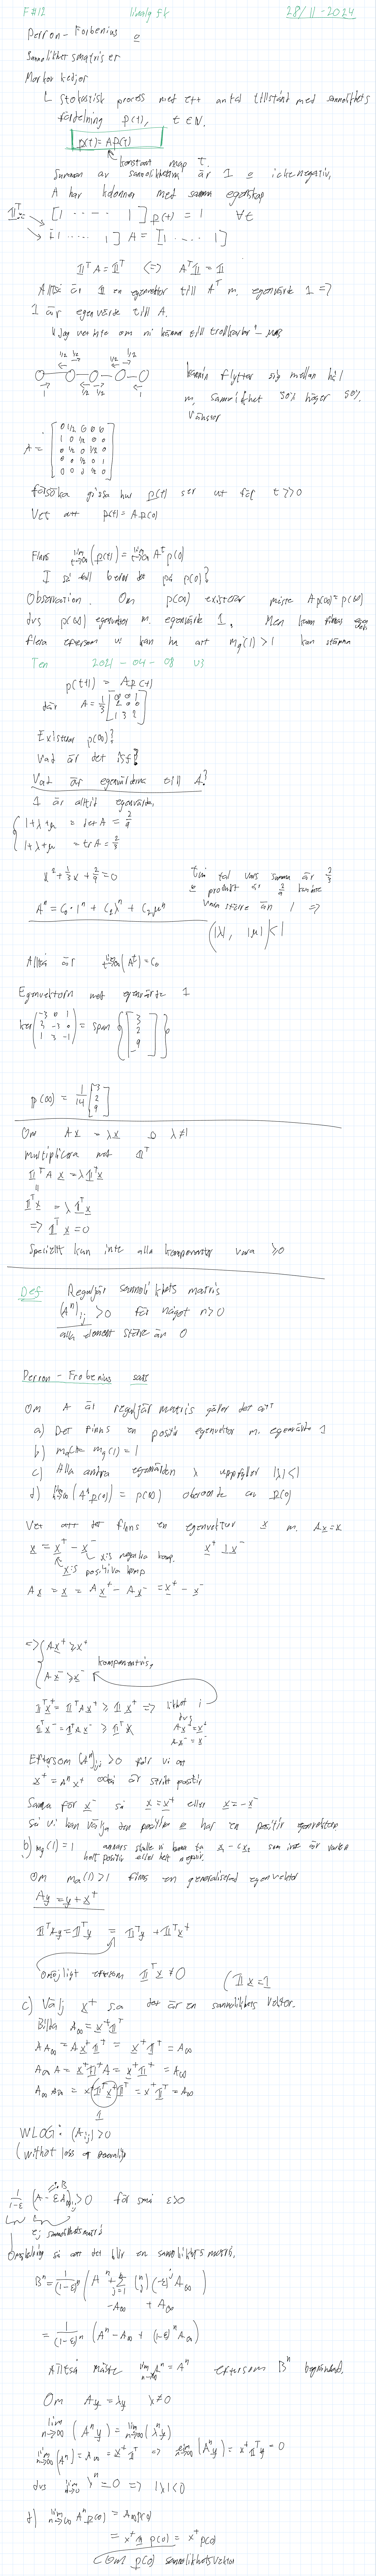 F#12 Linalg fk 28/11-2024
Perron-Forbenius &
Sannolikhetsmatriser
Markov kedjor
↳ stokastisk process med ett antal tillstånd med sannolikhets
fördelning p(t), t ∈ N.
p(t) = A p(t)
konstant map t.
Summan av sannolikheterna är 1 & ickenegativ.
A har kolonner med samma egenskap
𝟙ᵀ [1 ···· 1] p(t) = 1 ∀t
[1 ···· 1] A = [1 ···· 1]
𝟙ᵀA = 𝟙ᵀ <=> Aᵀ𝟙 = 𝟙
Alltså är 𝟙 en egenvektor till Aᵀ m. egenvärde 1 =>
1 är egenvärde till A.
"Jag vet inte om ni känner till trollkarlar" -
1/2 1/2 1/2
1 1/2 1/2 1
kanin flyttar sig mellan hål
m. sannolikhet 50% höger 50%
vänster
A = [0 1/2 0 0 0
1 0 1/2 0 0
0 1/2 0 1/2 0
0 0 1/2 0 1
0 0 0 1/2 0]
försöka gissa hur p(t) ser ut för t>>0
Vet att p(t) = A p(0)
Finns lim t→∞ (p(t)) = lim t→∞ Aᵗ p(0)
I så fall beror det på p(0)?
Observation. Om p(∞) existerar måste A p(∞) = p(∞)
dvs p(∞) egenvektor m. egenvärde 1. Men kan finnas
flera eftersom vi kan ha att m_g(1) > 1 kan stämma
Ten 2021-04-08 U3
p(t+1) = A p(t)
där A = 1/3 [0 0 1
2 0 0
1 3 2]
Existerar p(∞)?
Vad är det isf?
Vad är egenvärdena till A?
1 är alltid egenvärde.
1+λ+μ = det A = 2/9
1+λ+μ = tr A = 2/3
x² + 1/3 x + 2/9 = 0
Två tal vars summa är
& produkt är 2/9 kan inte
vara större än 1 =>
Aⁿ = C₀·1ⁿ + C₁λⁿ + C₂μⁿ
(|λ|, |μ| < 1
Alltså är lim t→∞ (Aᵗ) = C₀
Egenvektorn med egenvärde 1
ker (-3 0 1
2 -3 0
1 3 -1) = span {[3
2
9]}
p(∞) = 1/14 [3
2
9]
Om Ax = λx & λ≠1
multiplicera med 𝟙ᵀ
𝟙ᵀA x = λ𝟙ᵀx
=
𝟙ᵀx = λ𝟙ᵀx
=> 𝟙ᵀx = 0
Speciellt kan inte alla komponenter vara ≥0
Def Reguljär sannolikhets matris
(Aⁿ)ᵢⱼ > 0 för något n>0
alla element större än 0
Perron-Frobenius sats
Om A är reguljär matris gäller det att
a) Det finns en positiv egenvektor m. egenvärde 1
b) m_g(1) = 1
c) Alla andra egenvärden λ uppfyller |λ|<1
d) lim n→∞ (Aⁿp(0)) = p(∞) oberoende av p(0)
Vet att det finns en egenvektor x m. Ax=x
x = x⁺ - x⁻ x⁺ ⊥ x⁻
x:s negativa komp.
x:s positiva komp
Ax = x = Ax⁺ - Ax⁻ = x⁺ - x⁻
=> {Ax⁺ ≥ x⁺
Ax⁻ ≥ x⁻ komponentvis.
𝟙ᵀx⁺ = 𝟙ᵀAx⁺ ≥ 𝟙ᵀx⁺ => likhet i
𝟙ᵀx⁻ = 𝟙ᵀAx⁻ ≥ 𝟙ᵀx⁻ dvs
Ax⁺ = x⁺
Ax⁻ = x⁻
Eftersom (Aⁿ)ᵢⱼ > 0 får vi att
x⁺ = Aⁿx⁺ också är strikt positiv
Samma för x⁻ så x = x⁺ eller x = -x⁻
så vi kan välja den positiva & har en positiv egenvektor
b) m_g(1) = 1 annars skulle vi kunna ta x₁ - cx₂ som inte är varken
helt positiv eller helt negativ.
Om mₐ(1) > 1 finns en generaliserad egenvektor
Ay = y + x⁺
𝟙ᵀAy = 𝟙ᵀy = 𝟙ᵀy + 𝟙ᵀx⁺
Omöjligt eftersom 𝟙ᵀx ≠ 0 (𝟙x = 1
c) Välj x⁺ s.a det är en sannolikhets vektor.
Bilda A∞ = x⁺𝟙ᵀ
AA∞ = Ax⁺𝟙ᵀ = x⁺𝟙ᵀ = A∞
A∞A = x⁺𝟙ᵀA = x⁺𝟙ᵀ = A∞
A∞A∞ = x⁺𝟙ᵀx⁺𝟙ᵀ = x⁺𝟙ᵀ = A∞
1
WLOG: (Aᵢⱼ) > 0
(without loss of generality
B
1/(1-ε) (A - εA∞)ᵢⱼ > 0 för små ε>0
ej sannolikhetsmatris
Omskalning så att det blir en sannolikhets matris.
Bⁿ = 1/(1-ε)ⁿ (Aⁿ + Σ j=1 (n j)(-ε)ʲ A∞)
-A∞ + A∞
= 1/(1-ε)ⁿ (Aⁿ - A∞ + (1-ε)ⁿA∞)
Alltså måste lim n→∞ Aⁿ = Aⁿ eftersom Bⁿ begränsad.
Om Ay = λy λ≠0
lim n→∞ (Aⁿy) = lim n→∞ (λⁿy)
lim n→∞ (Aⁿ) = A∞ = x⁺𝟙ᵀ => lim n→∞ (Aⁿy) = x⁺𝟙ᵀy = 0
dvs lim n→∞ λⁿ = 0 => |λ|<1
d) lim n→∞ Aⁿp(0) = A∞p(0)
= x⁺𝟙 p(0) = x⁺p(0)
(om p(0) sannolikhetsvektor